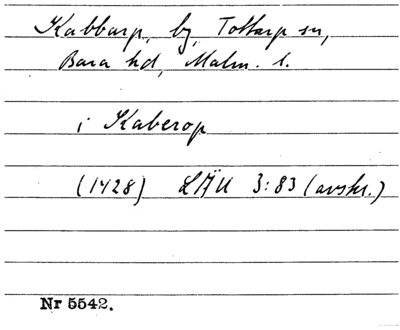 Kabbarp, by, Tottarp sn,
Bara hd, Malm. l.
i Kaberop
(1428) LÄU 3:83 (avskr.)
Nr 5542.